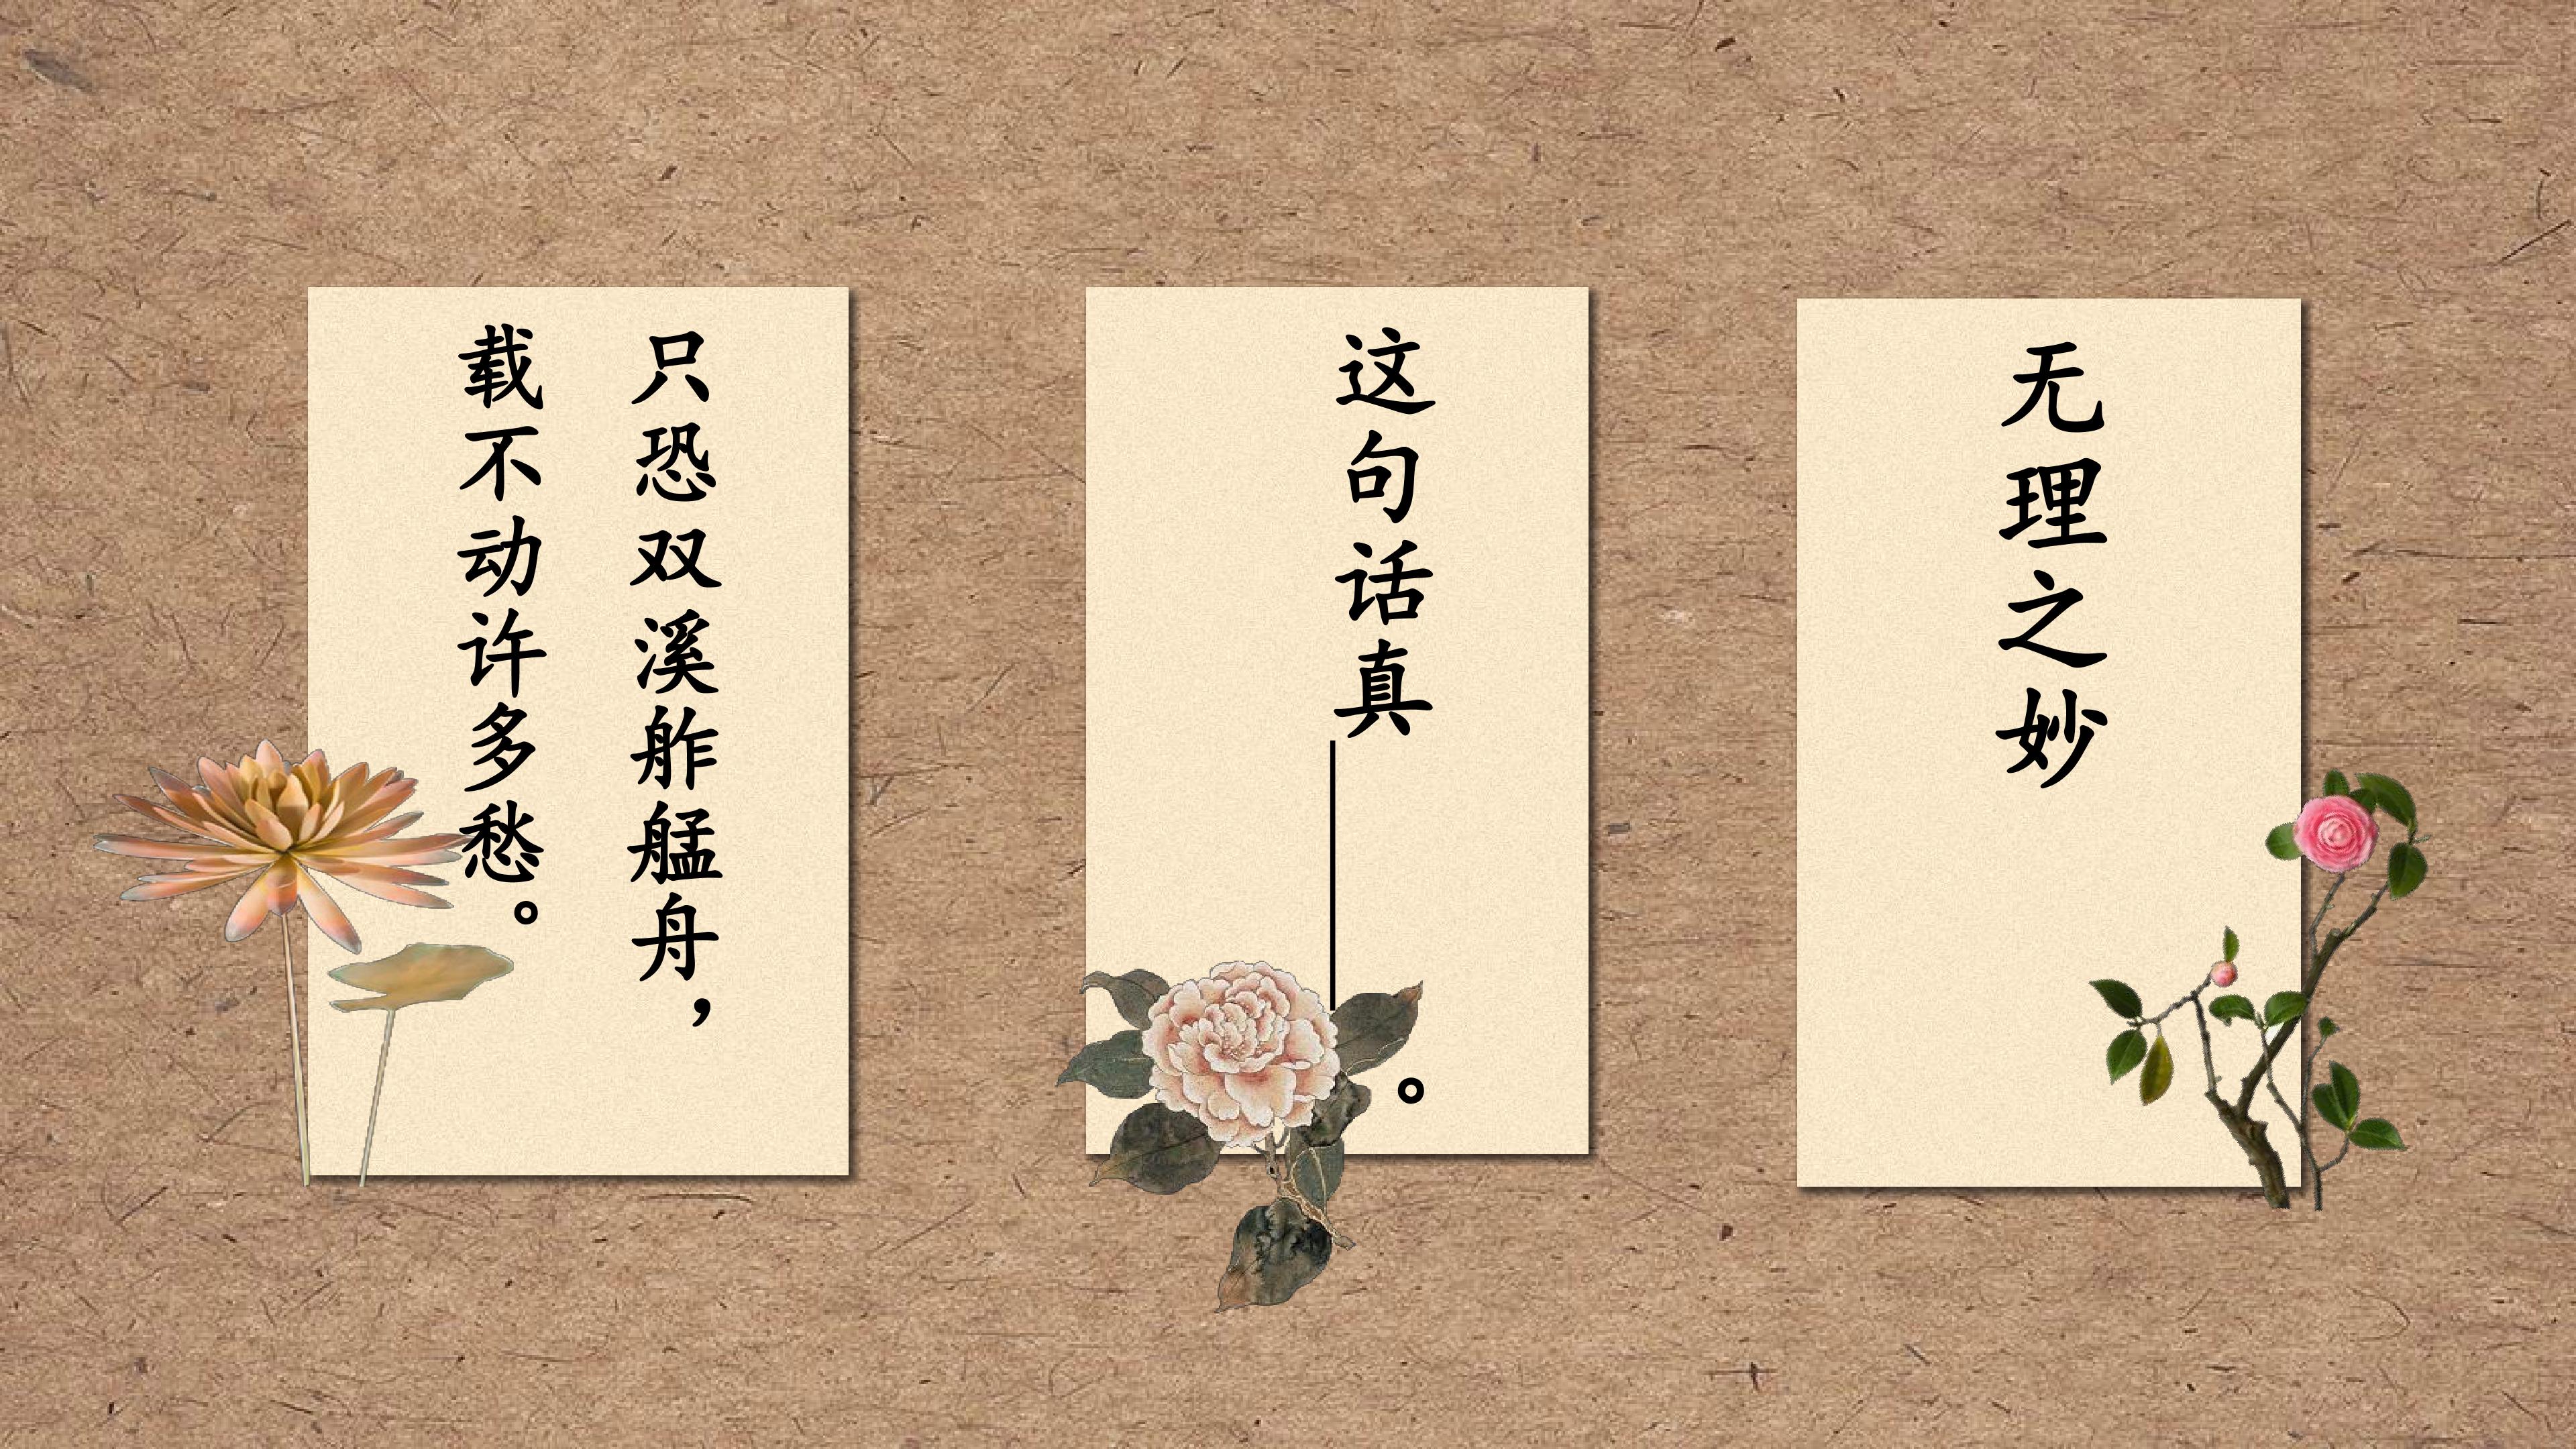 无理之妙
这句话真______。
只恐双溪舴艋舟，
载不动许多愁。